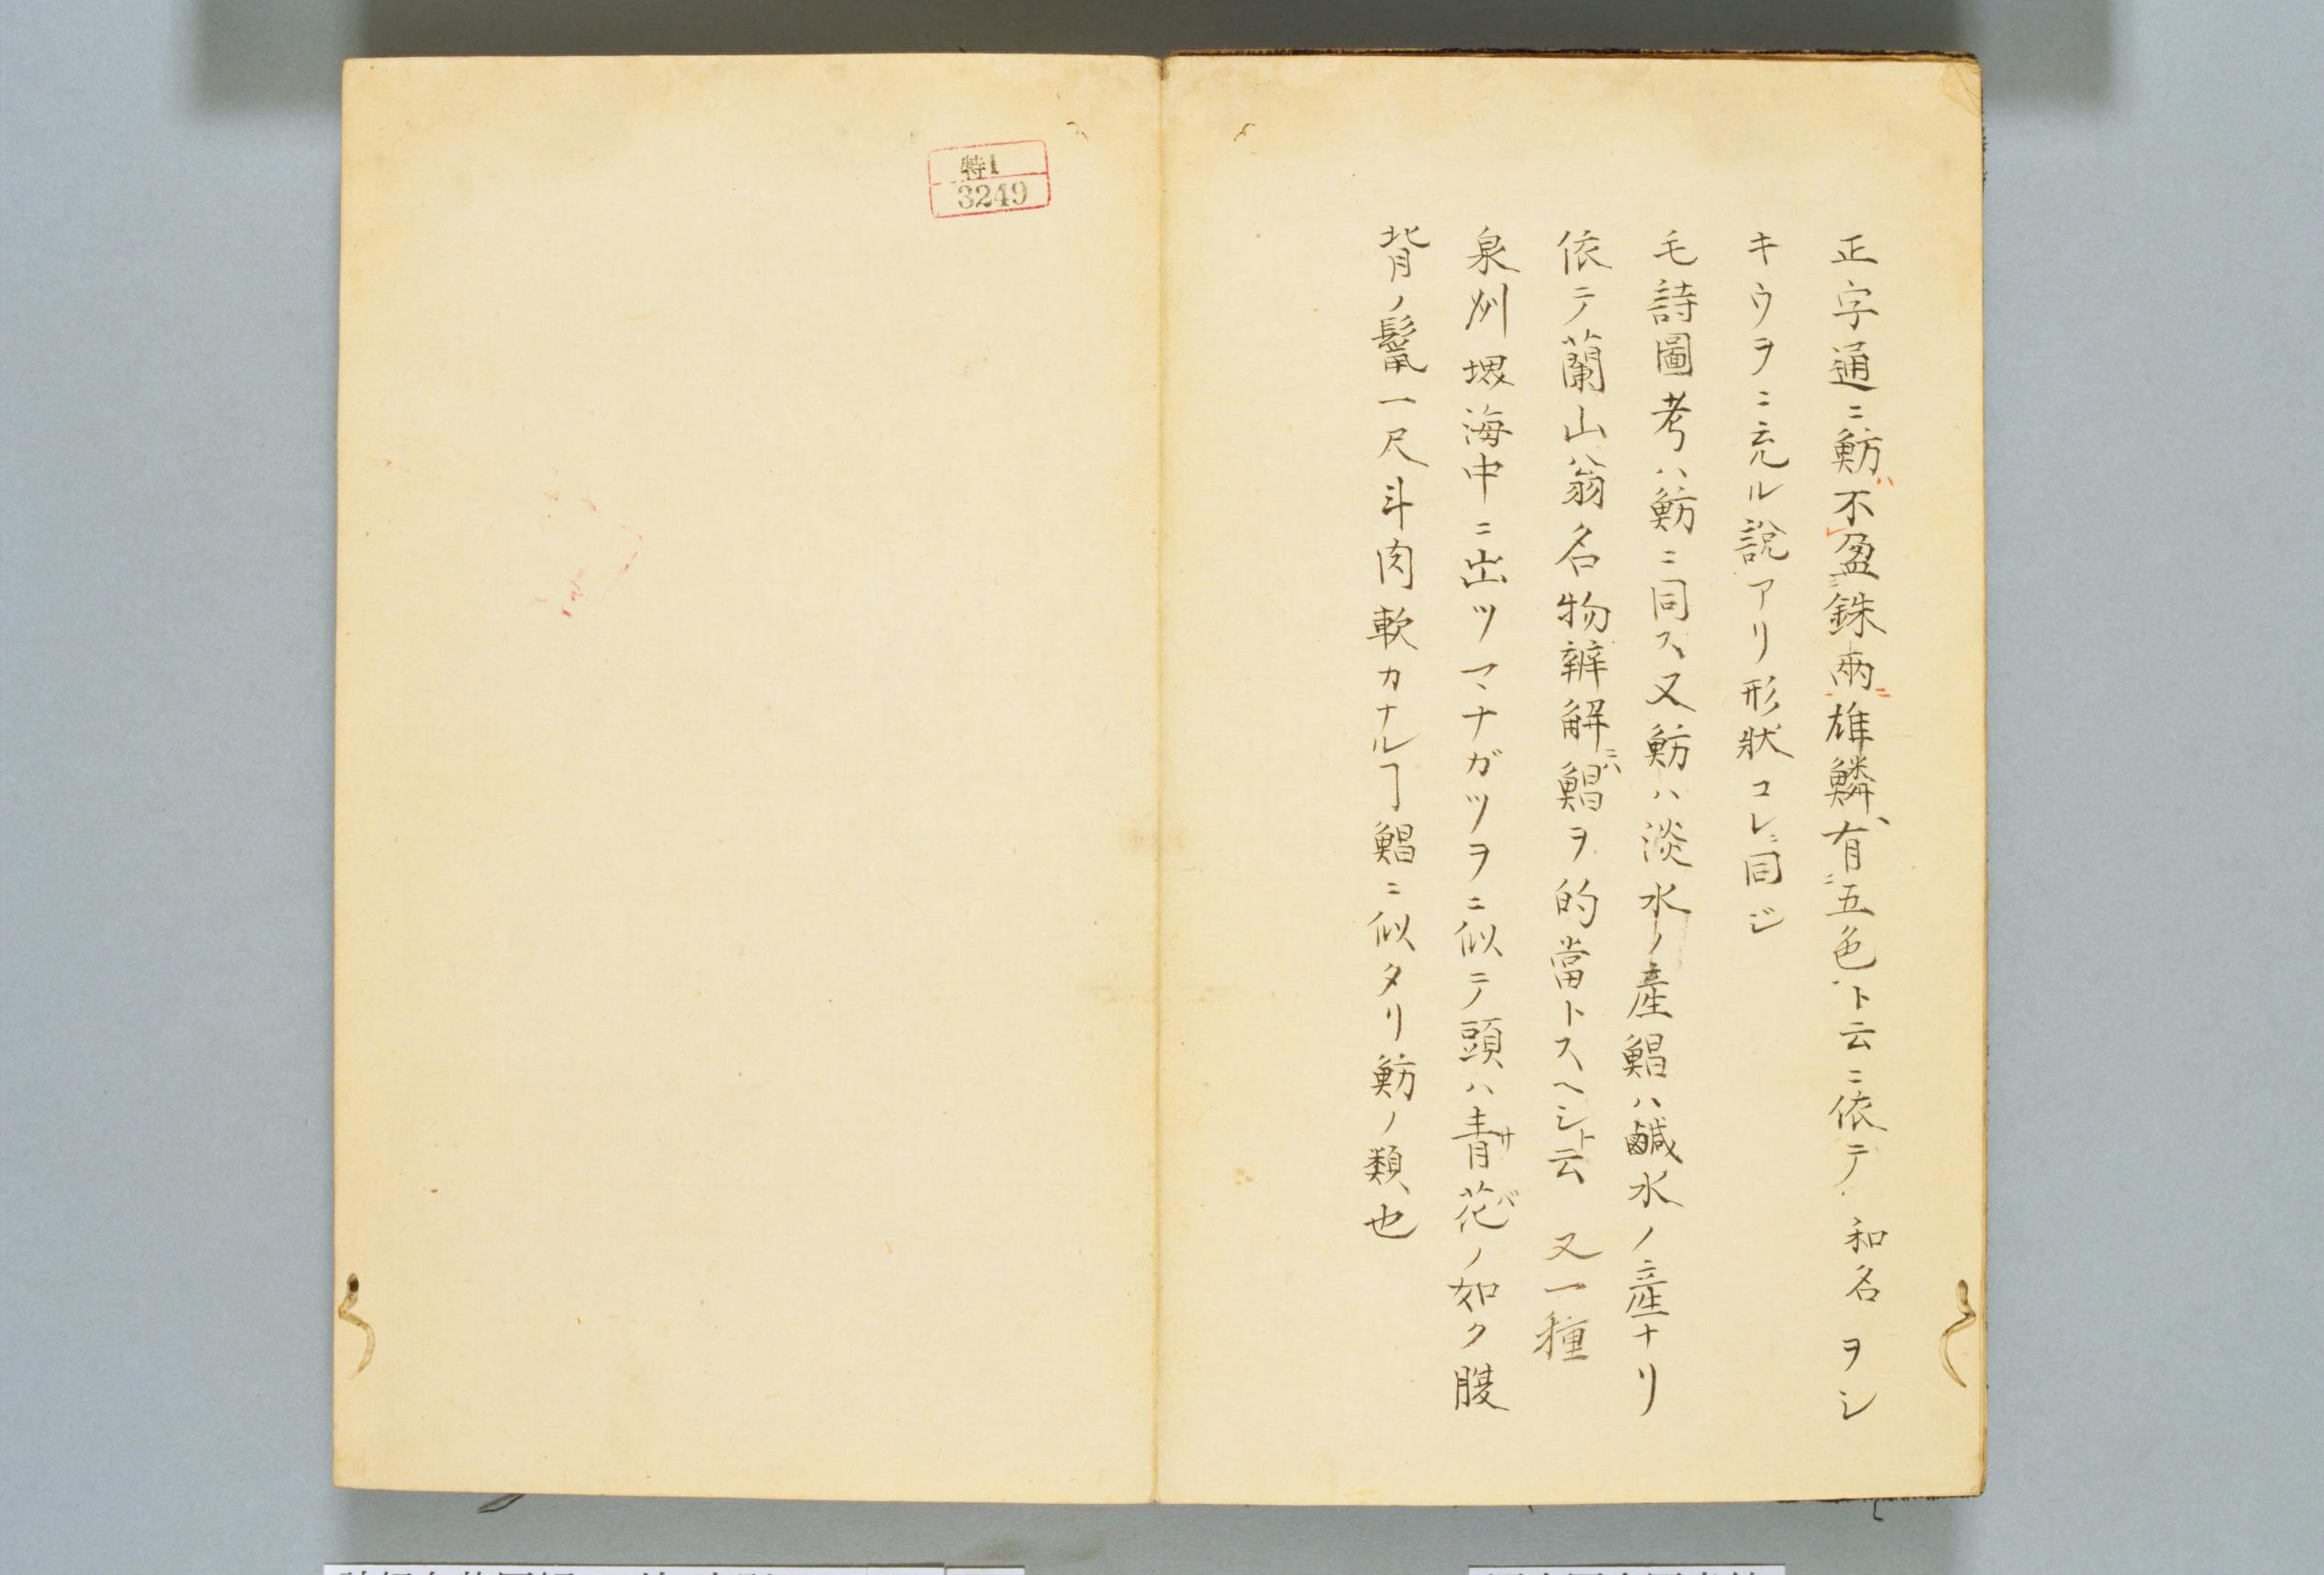 正字通ニ魴ハ不盈銖兩雄鱗有五色ト云ニ依テ和名ヲシ
キウヲニ充ル說アリ形狀コレニ同ジ
毛詩圖考ハ魴ニ同ス又魴ハ淡水ノ產鯧ハ鹹水ノ產ナリ
依テ蘭山翁名物辨解ニハ鯧ヲ的當トスヘシト云 又一種
泉州堺海中ニ出ツマナガツヲニ似テ頭ハ青花ノ如ク腹
サバ
背ノ鬣一尺斗肉軟カナルヿ鯧ニ似タリ魴ノ類也
特1
3249